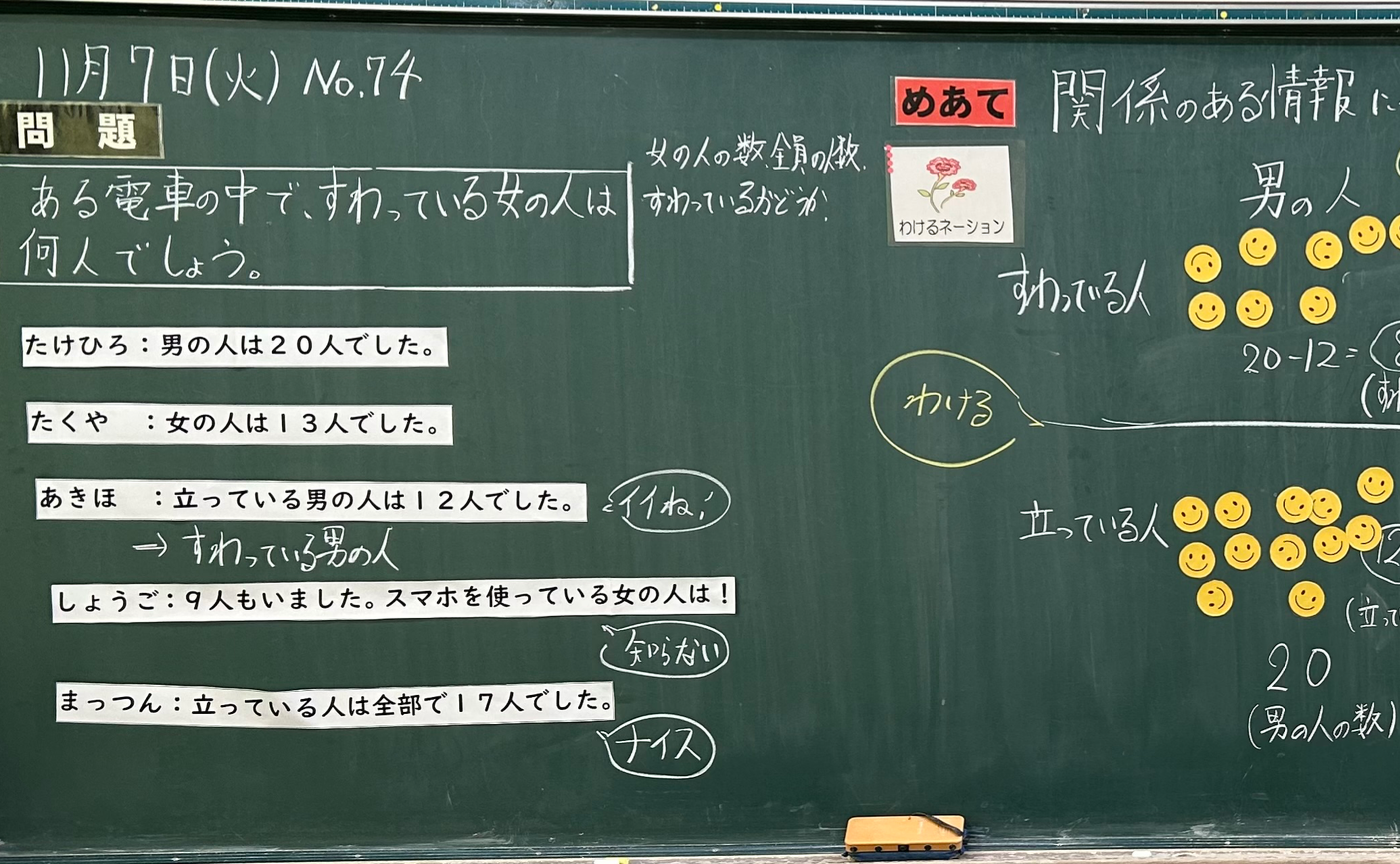 11月7日(火) No.74
問 題
ある電車の中で、すわっている女の人は
何人でしょう。
女の人の数、全員の人数、
すわっているかどうか!
たけひろ：男の人は２０人でした。
たくや　：女の人は１３人でした。
あきほ　：立っている男の人は１２人でした。
イイね!
⇒ すわっている男の人
しょうご：９人もいました。スマホを使っている女の人は！
知らない
まっつん：立っている人は全部で１７人でした。
ナイス
めあて
関係のある情報に
わけるネーション
男の人
すわっている人
20-12=
(すわ
わける
立っている人
12
(立って
20
(男の人の数)